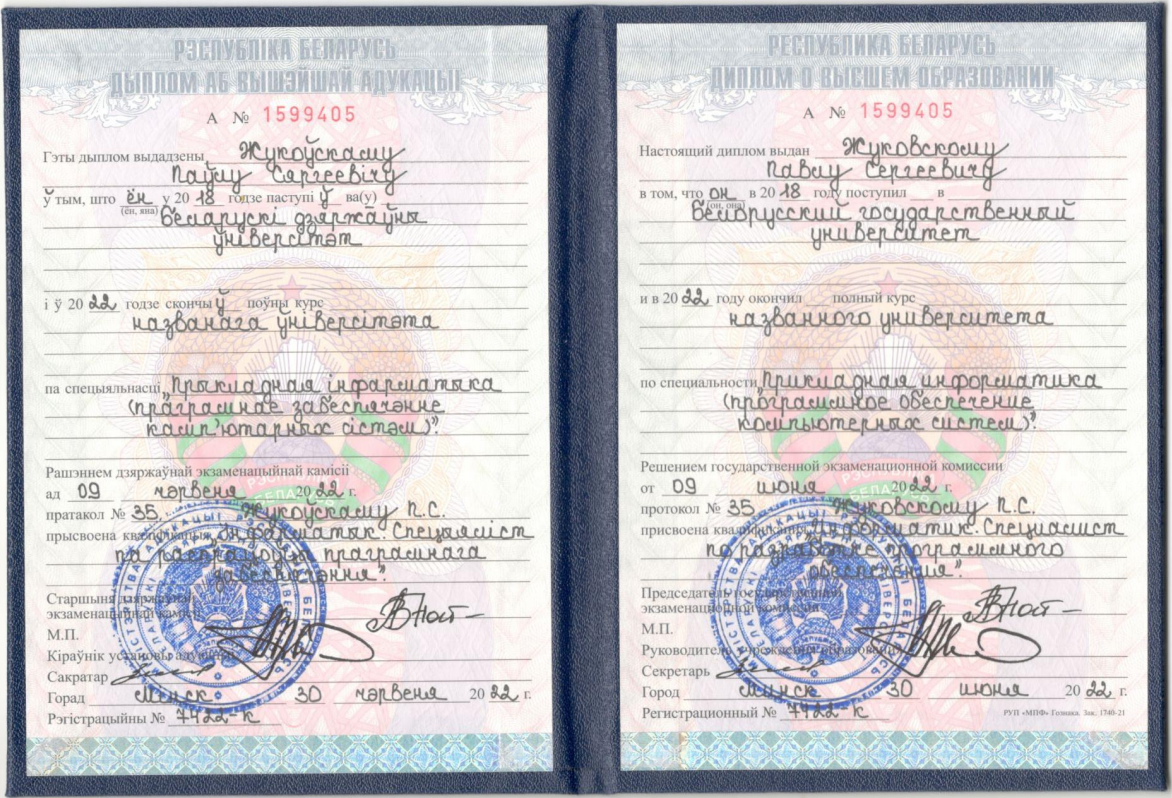 РЭСПУБЛІКА БЕЛАРУСЬ
ДЫПЛОМ АБ ВЫШЭЙШАЙ АДУКАЦЫІ
А № 1599405
Гэты дыплом выдадзены Жукоўскаму
Паўлу Сяргеевічу
ў тым, што ён у 20 18 годзе паступі ў ва(у)
(ён, яна)
Беларускі дзяржаўны
ўніверсітэт
і ў 20 22 годзе скончы ў поўны курс
названага ўніверсітэта
па спецыяльнасці „Прыкладная інфарматыка
(праграмнае забеспячэнне
камп'ютарных сістэм)”.
Рашэннем дзяржаўнай экзаменацыйнай камісіі
ад 09 чэрвеня 20 22 г.
пратакол № 35. Жукоўскаму П.С.
прысвоена кваліфікацыя „Інфарматык. Спецыяліст
па распрацоўцы праграмнага
забеспячэння”.
Старшыня дзяржаўнай
экзаменацыйнай камісіі
М.П.
Кіраўнік установы адукацыі
Сакратар
Горад Мінск 30 чэрвеня 20 22 г.
Рэгістрацыйны № 7422-К
РЕСПУБЛИКА БЕЛАРУСЬ
ДИПЛОМ О ВЫСШЕМ ОБРАЗОВАНИИ
А № 1599405
Настоящий диплом выдан Жуковскому
Павлу Сергеевичу
в том, что он в 20 18 году поступил в
(он, она)
Белорусский государственный
университет
и в 20 22 году окончил полный курс
названного университета
по специальности „Прикладная информатика
(программное обеспечение
компьютерных систем)”.
Решением государственной экзаменационной комиссии
от 09 июня 20 22 г.
протокол № 35 Жуковскому П.С.
присвоена квалификация „Информатик. Специалист
по разработке программного
обеспечения”.
Председатель государственной
экзаменационной комиссии
М.П.
Руководитель учреждения образования
Секретарь
Город Минск 30 июня 20 22 г.
Регистрационный № 7422-К
РУП «МПФ» Гознака. Зак. 1740-21